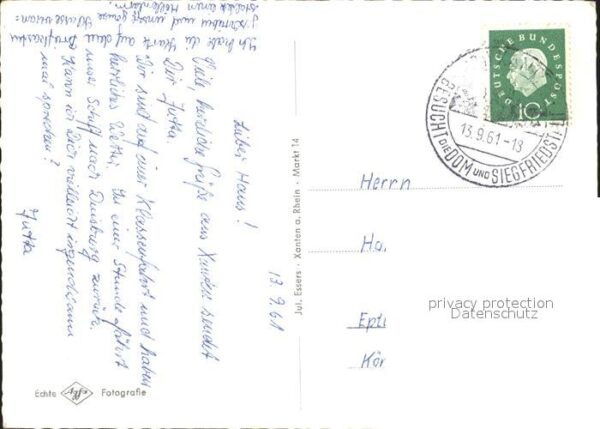 Ich habe die Karte auf dem Briefkasten
geschrieben und unsere ganze Klasse war
Lieber Hans!
Viele herzliche Grüße aus Xanten sendet
Dir Jutta
Wir sind auf einer Klassenfahrt und haben
herrliches Wetter. In einer Stunde fährt
unser Schiff nach Duisburg zurück.
Kann ich Dich vielleicht irgendwann
mal sprechen?
Jutta
13.9.61
Echte Agfa Fotografie
Jul. Essers · Xanten a. Rhein · Markt 14
DEUTSCHE BUNDESPOST
10
13.9.61-18
BESUCHT DIE DOM UND SIEGFRIEDST
Herrn
Ha.
Epti
Kör
privacy protection
Datenschutz